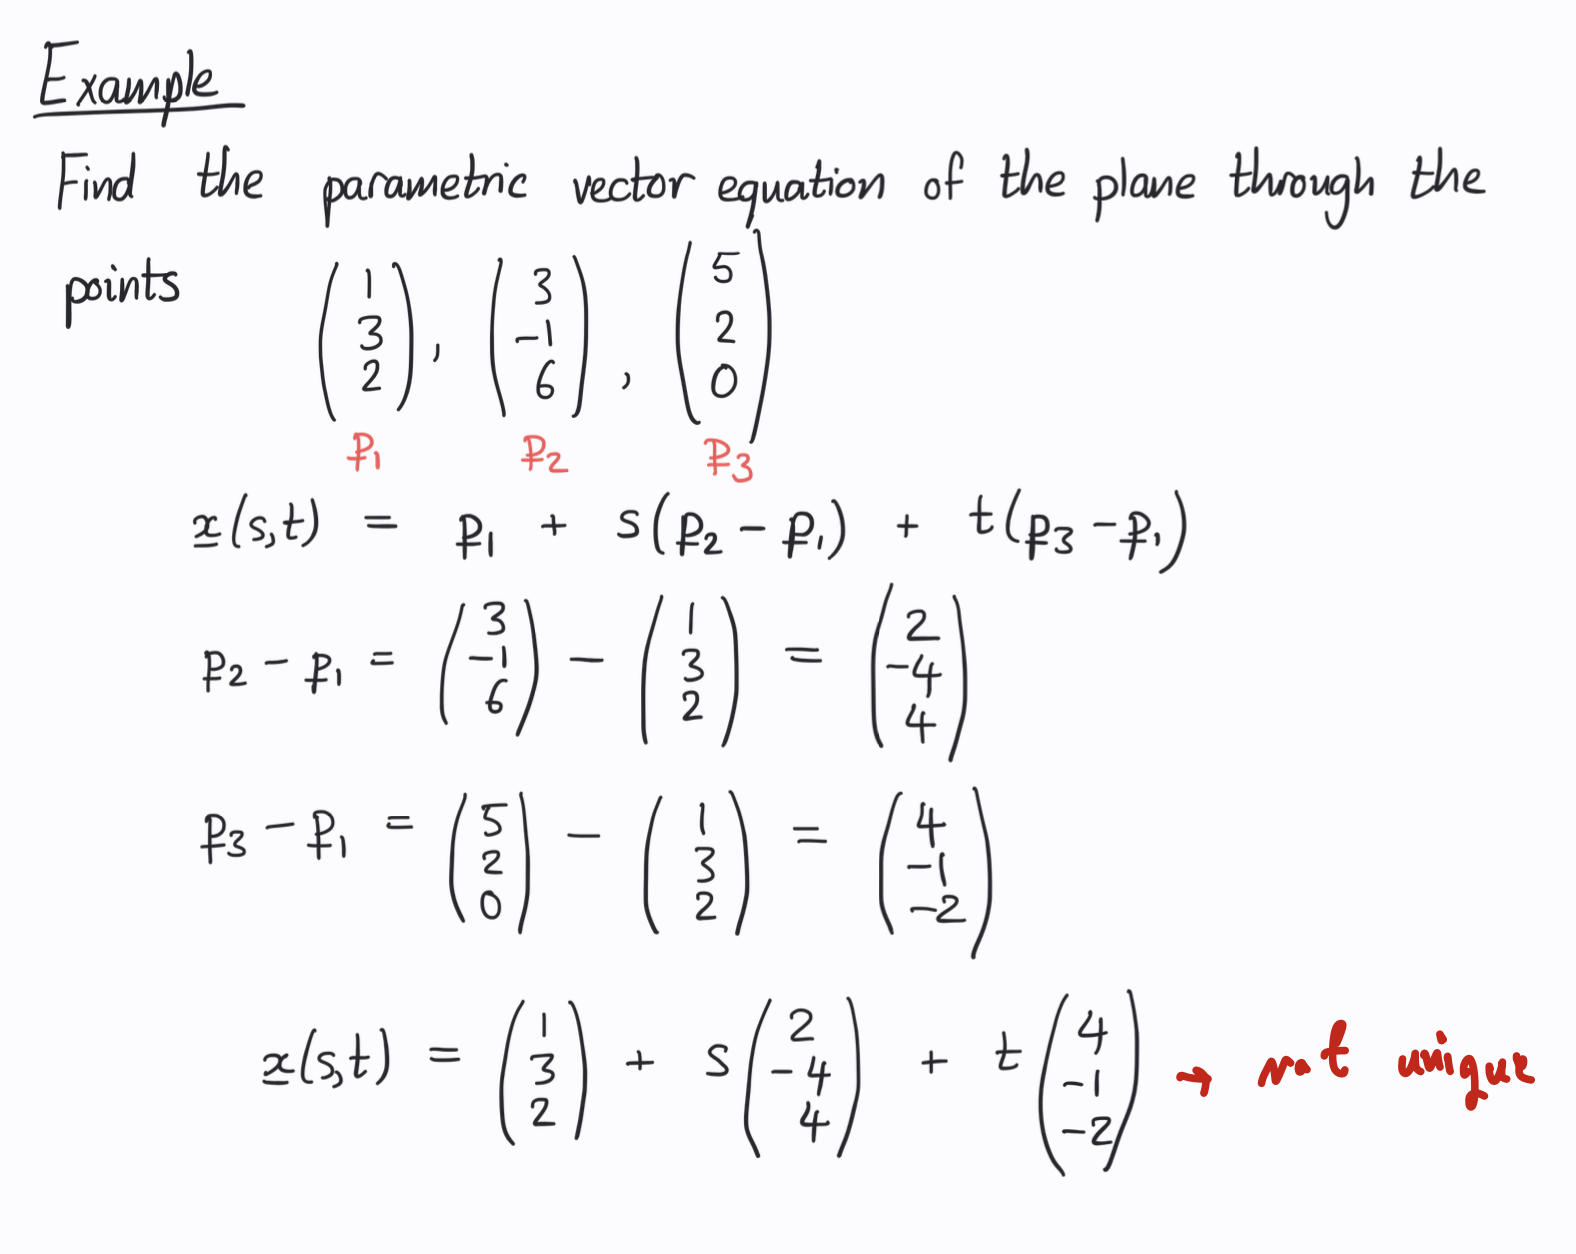 Example
Find the parametric vector equation of the plane through the
points (1 3 2), (3 -1 6), (5 2 0)
p₁ p₂ p₃
x(s,t) = p₁ + s(p₂ - p₁) + t(p₃ - p₁)
p₂ - p₁ = (3 -1 6) - (1 3 2) = (2 -4 4)
p₃ - p₁ = (5 2 0) - (1 3 2) = (4 -1 -2)
x(s,t) = (1 3 2) + s(2 -4 4) + t(4 -1 -2) → not unique